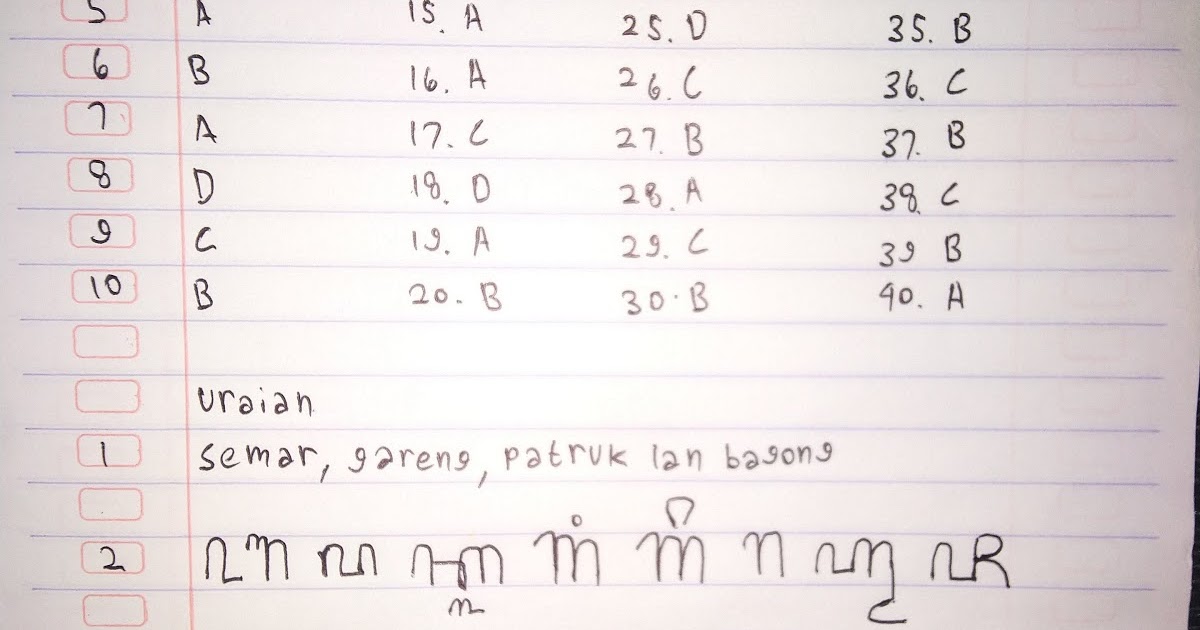 5 A 15. A 25. D 35. B
6 B 16. A 26. C 36. C
7 A 17. C 27. B 37. B
8 D 18. D 28. A 38. C
9 C 19. A 29. C 39 B
10 B 20. B 30. B 40. A
uraian
1 semar, gareng, patruk lan bagong
2